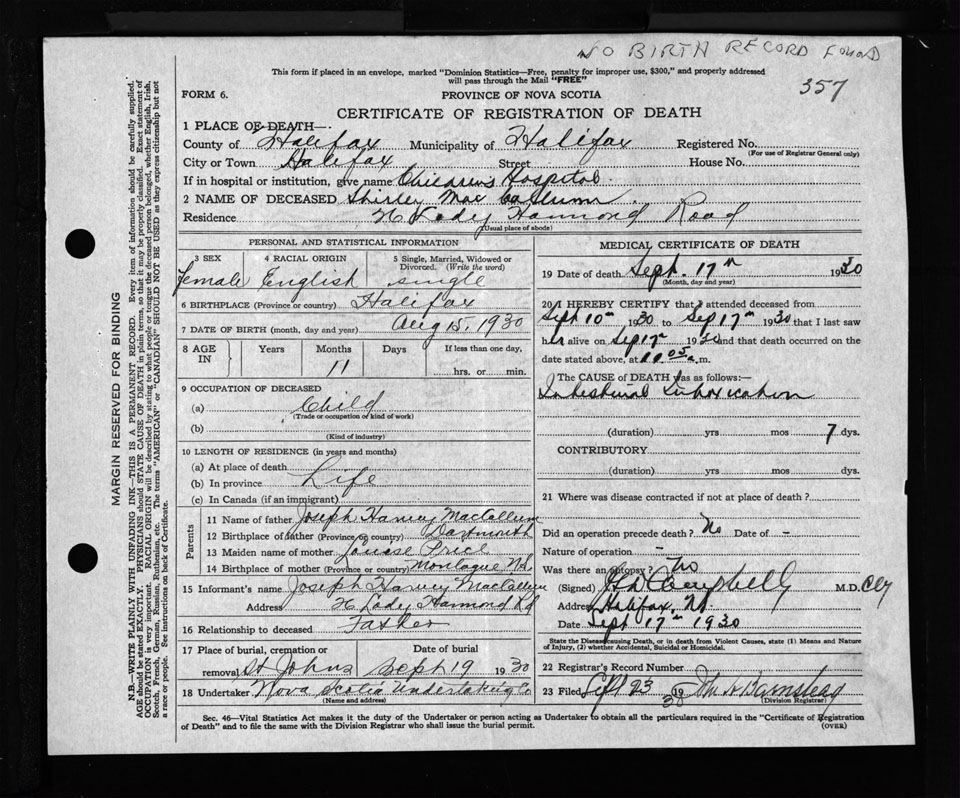 NO BIRTH RECORD FOUND
This form if placed in an envelope, marked "Dominion Statistics—Free, penalty for improper use, $300," and properly addressed
will pass through the Mail "FREE"
357
FORM 6.
PROVINCE OF NOVA SCOTIA
CERTIFICATE OF REGISTRATION OF DEATH
1 PLACE OF DEATH—
County of Halifax Municipality of Halifax Registered No.
(For use of Registrar General only)
City or Town Halifax Street House No.
If in hospital or institution, give name Children's Hospital
2 NAME OF DECEASED Shirley Mae
Residence Lady Hammond Road
(Usual place of abode)
PERSONAL AND STATISTICAL INFORMATION
3 SEX 4 RACIAL ORIGIN 5 Single, Married, Widowed or Divorced. (Write the word)
Female English single
6 BIRTHPLACE (Province or country) Halifax
7 DATE OF BIRTH (month, day and year) Aug 15, 1930
8 AGE IN Years Months Days If less than one day,
11 hrs. or min.
9 OCCUPATION OF DECEASED
(a) Child
(Trade or occupation of kind of work)
(b)
(Kind of industry)
10 LENGTH OF RESIDENCE (in years and months)
(a) At place of death
(b) In province Life
(c) In Canada (if an immigrant)
Parents
11 Name of father Joseph Harvey MacCallum
12 Birthplace of father (Province or country) Dartmouth
13 Maiden name of mother Louise Price
14 Birthplace of mother (Province or country) Montague N.S.
15 Informant's name Joseph Harvey MacCallum
Address Lady Hammond Rd
16 Relationship to deceased Father
17 Place of burial, cremation or removal Date of burial
St Johns Sept 19 1930
18 Undertaker Nova Scotia Undertaking Co
(Name and address)
MEDICAL CERTIFICATE OF DEATH
19 Date of death Sept. 17th 1930
(Month, day and year)
20 I HEREBY CERTIFY that I attended deceased from
Sept 10th 1930 to Sep 17th 1930 that I last saw
her alive on Sep 17th 1930 and that death occurred on the
date stated above, at 11.05 a.m.
The CAUSE OF DEATH was as follows:—
Intestinal Intoxication
(duration) yrs mos 7 dys.
CONTRIBUTORY
(duration) yrs mos dys.
21 Where was disease contracted if not at place of death?
Did an operation precede death? No Date of -
Nature of operation -
Was there an autopsy? No
(Signed) Campbell M.D.
Address Halifax, N.S.
Date Sept 17th 1930
State the Disease causing Death, or in death from Violent Causes, state (1) Means and Nature
of Injury, (2) whether Accidental, Suicidal or Homicidal.
22 Registrar's Record Number
23 Filed Sept 23 1930
(Division Registrar)
Sec. 46—Vital Statistics Act makes it the duty of the Undertaker or person acting as Undertaker to obtain all the particulars required in the "Certificate of Registration
of Death" and to file the same with the Division Registrar who shall issue the burial permit.
(OVER)
MARGIN RESERVED FOR BINDING
N.B.—WRITE PLAINLY WITH UNFADING INK—THIS IS A PERMANENT RECORD. Every item of information should be carefully supplied.
AGE should be stated EXACTLY. PHYSICIANS should STATE CAUSE OF DEATH in plain terms, so that it may be properly classified. Exact statement of
OCCUPATION is very important. RACIAL ORIGIN will be described by stating to what people or tongue the deceased person belonged, whether English, Irish,
Scotch, French, German, Russian, Ruthenian, etc. The terms "AMERICAN" or "CANADIAN" SHOULD NOT BE USED as they express citizenship but not
a race or people. See instructions on back of Certificate.